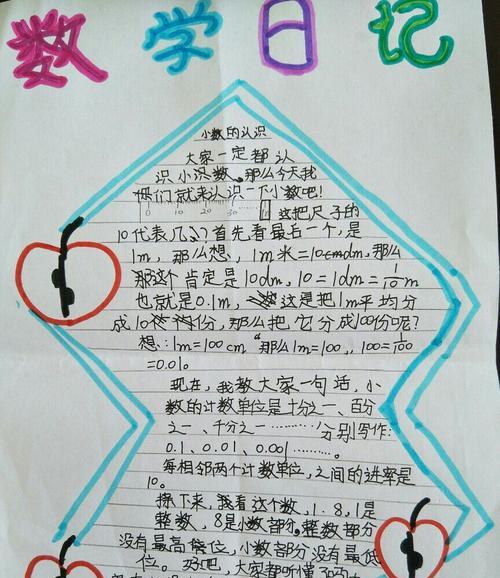 数学日记
小数的认识
大家一定都认
识小数。那么今天我
们就来认识一下小数吧！
0 10 20 30 这把尺子的
10代表几？首先看最后一个，是
1m，那么想，1m米=10dm，那么
那这个肯定是10dm，10=1dm=1/10m
也就是0.1m，这是把1m平均分
成10份，那么把它分成100份呢？
想：1m=100cm 那么1m=100，100=1/100
=0.01。
现在，我教大家一句话，小
数的计数单位是十分之一、百分
之一、千分之一………分别写作：
0.1、0.01、0.001………。
每相邻两个计数单位，之间的进率是
10。
接下来，我看这个数，1.8，1是
整数，8是小数部分。整数部分
没有最高位，小数部分没有最低
位。好吧，大家都听懂了吗